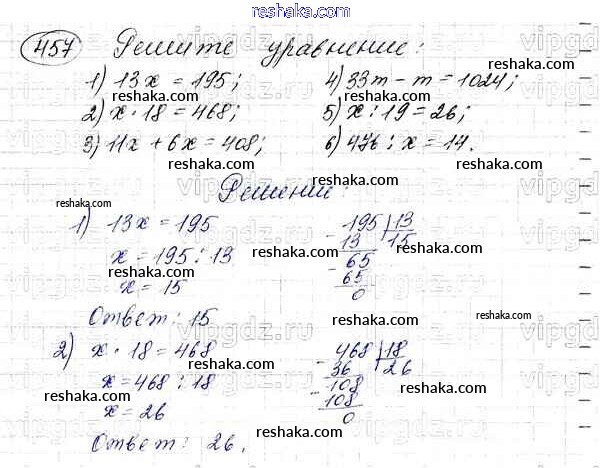 reshaka.com
457 Решите уравнение:
1) 13x = 195; 4) 33m - m = 1024;
reshaka.com reshaka.com
2) x · 18 = 468; 5) x : 19 = 26;
reshaka.com reshaka.com
3) 11x + 6x = 408; 6) 476 : x = 14.
reshaka.com reshaka.com
Решение:
reshaka.com reshaka.com
1) 13x = 195 195 | 13
x = 195 : 13 - 13 15
reshaka.com reshaka.com
- 65
x = 15 65
reshaka.com reshaka.com
0
Ответ: 15
reshaka.com reshaka.com
vipgdz.ru
2) x · 18 = 468 468 | 18
reshaka.com reshaka.com
- 36 26
x = 468 : 18 - 108
reshaka.com reshaka.com
x = 26 108
reshaka.com reshaka.com
0
Ответ: 26.
reshaka.com reshaka.com